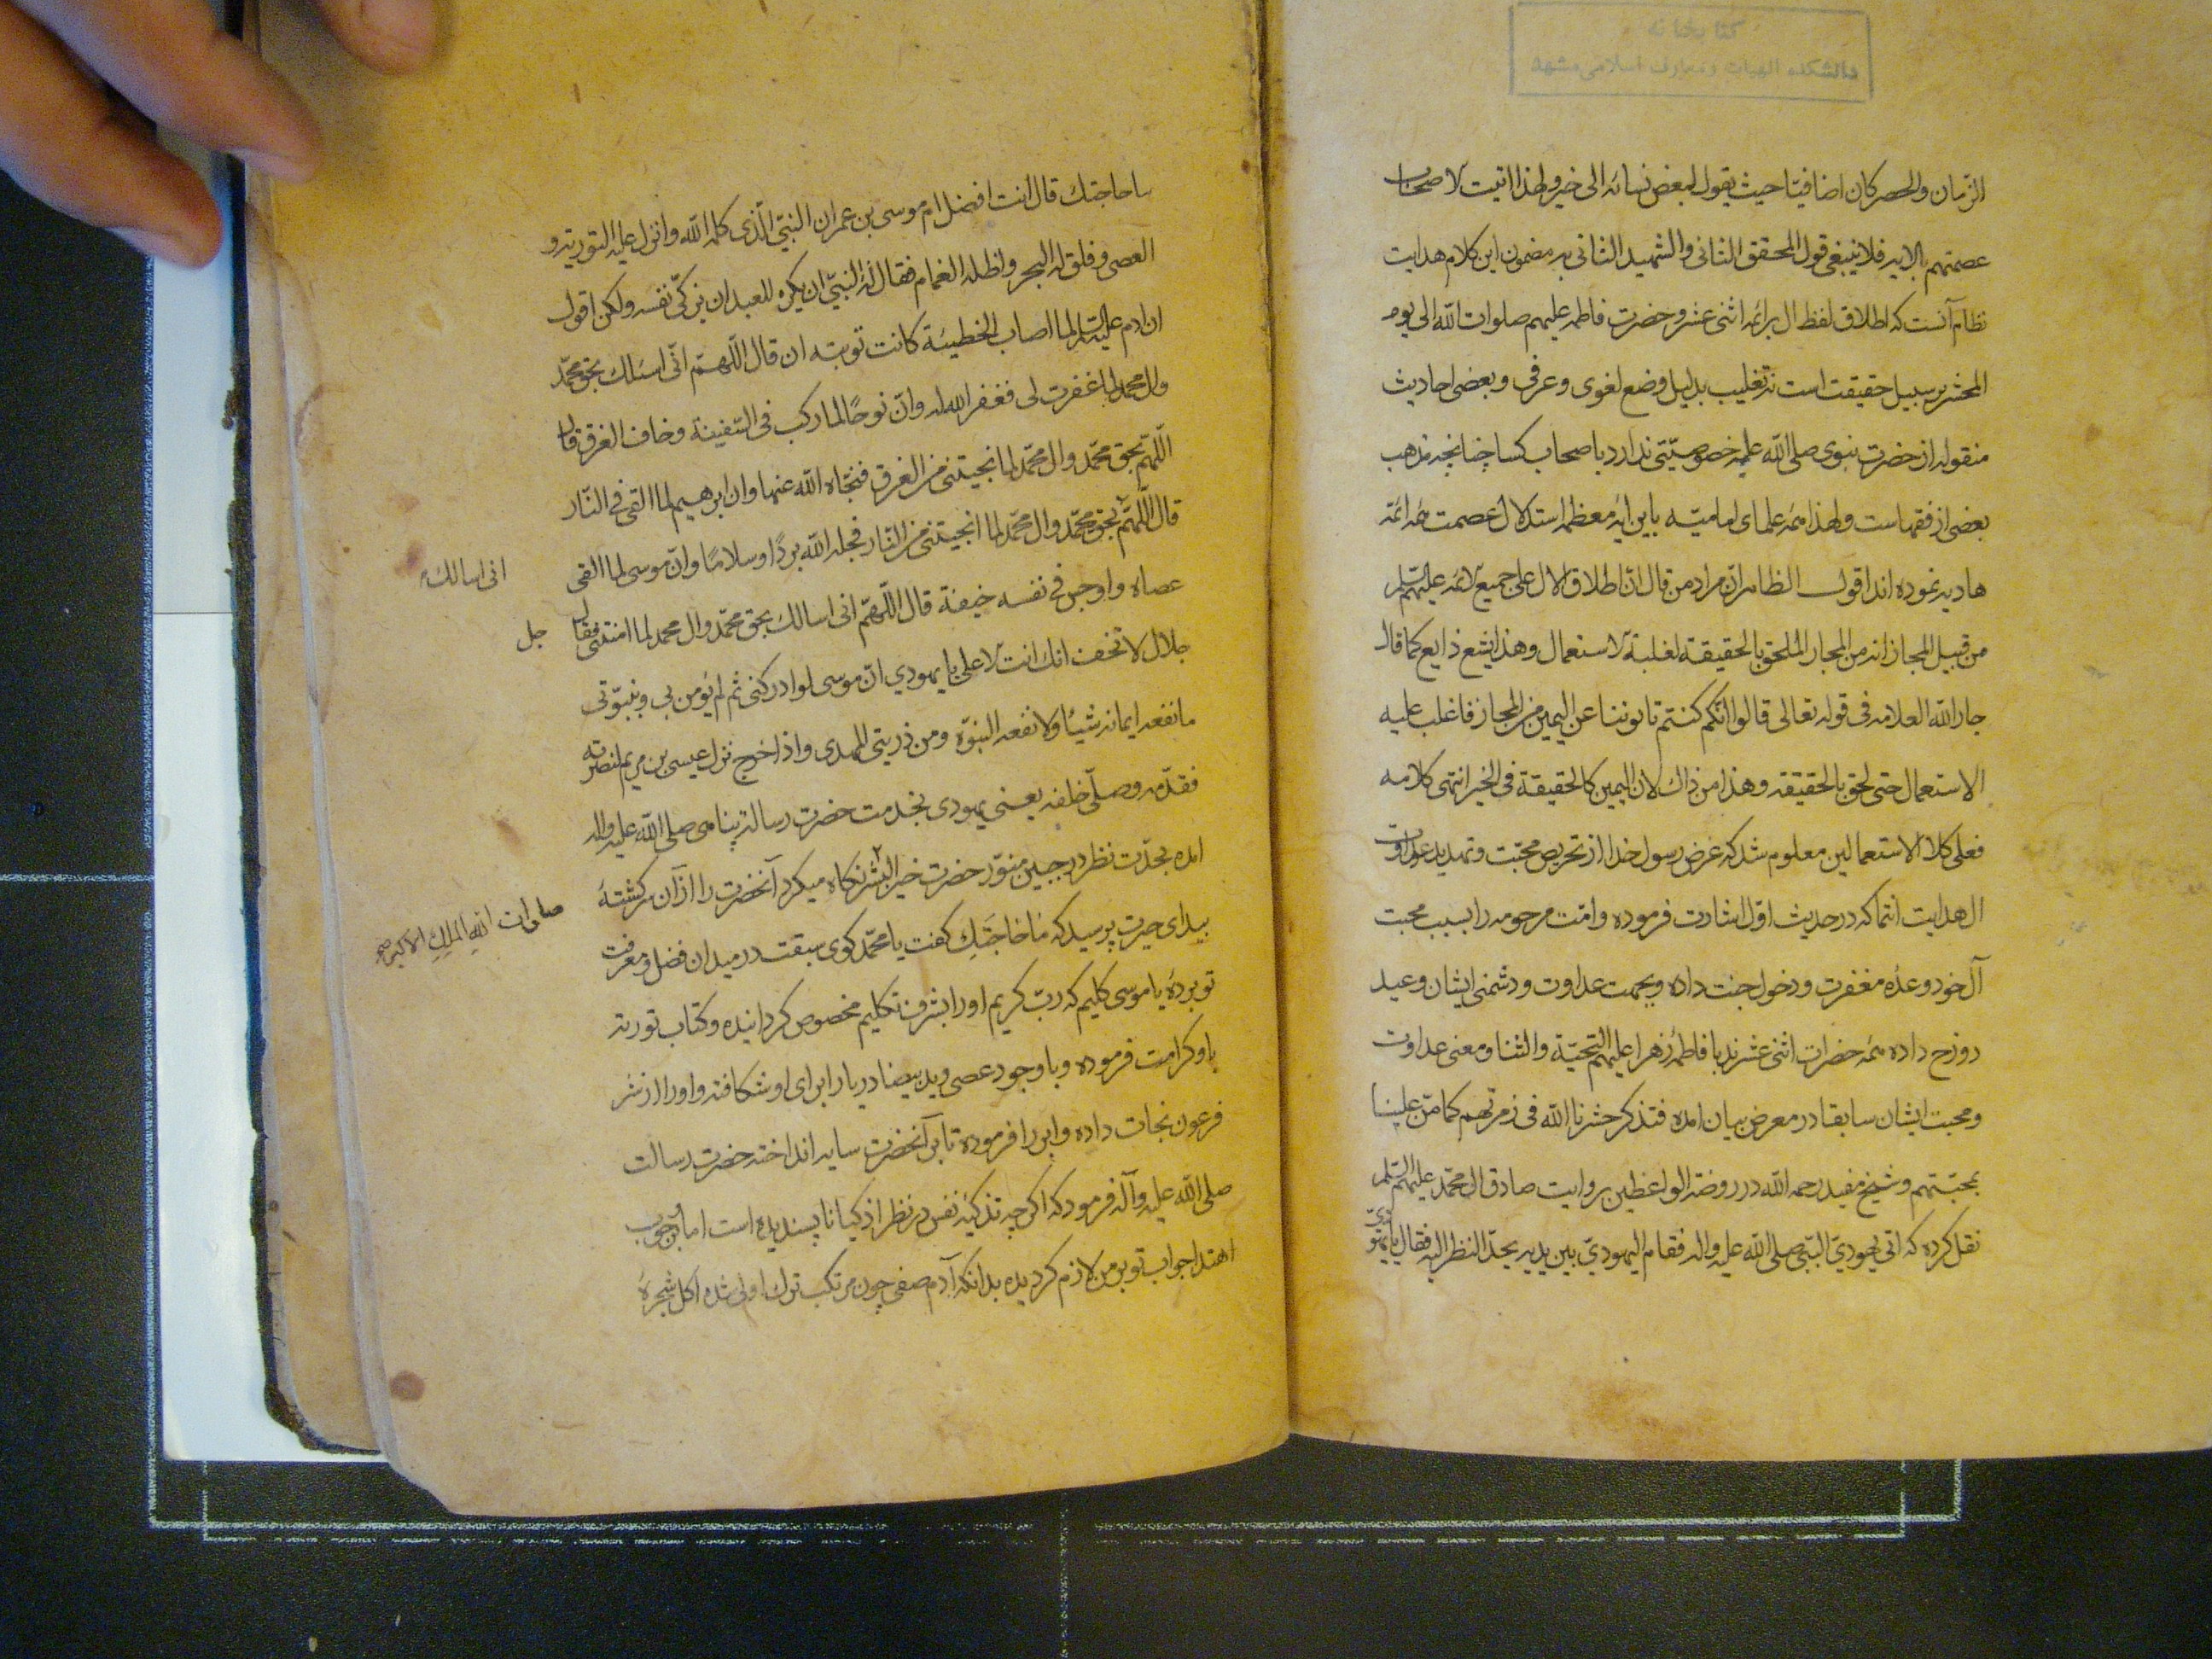 کتابخانه
دانشکده الهیات و معارف اسلامی مشهد
الزمان والحصر کان اضافیتا حیث یقول لبعض نسائه الی خیر ولهذا اثبت لاصحاب
عصمتهم بالایه فلا ینبغی قول المحقق الثانی والشهید الثانی به مضمون این کلام هدایت
نظام آنست که اطلاق لفظ ال بر ائمه اثنی عشر و حضرت فاطمه علیهم صلوات الله الی یوم
المحشر بر سبیل حقیقت است نه تغلیب بدلیل وضع لغوی و عرفی و بعضی احادیث
منقوله از حضرت نبوی صلی الله علیه خصوصیّتی ندارد باصحاب کسا چنانچه مذهب
بعضی از فقهاست ولهذا همه علمای امامیّه باین ایه معظمه استدلال عصمت همه ائمّه
هادیه نموده اند اقول الظاهر انّ مراد من قال انّ اطلاق الال علی جمیع الائمه علیهم السلم
من قبیل المجاز انه من المجاز الملحق بالحقیقة لغلبة الاستعمال وهذا یشع ذایع کما قال
جار الله العلامه فی قوله تعالی قالوا انّکم کنتم تاتوننا عن الیمین من المجاز فاغلب علیه
الاستعمال حتی لحق بالحقیقه وهذا من ذاک لان الیمین کالحقیقة فی الخیر انتهی کلامه
فعلی کلا الاستعمالین معلوم شد که غرض رسول خدا از تحریص محبّت و تهدید عداوت
ال هدایت انتما که در حدیث اوّل اشارت فرموده و امّت مرحومه را بسبب محبت
آل خود وعده مغفرت و دخول جنت داده و بجهت عداوت و دشمنی ایشان وعید
دوزخ داده همه حضرات اثنی عشرند با فاطمهٔ زهرا علیهم التحیّة والثنا و معنی عداوت
و محبت ایشان سابقا در معرض بیان امده فتذکر حشرنا الله فی زمرتهم کما منّ علینا
بمحبّتهم و شیخ مفید رحمه الله در روضة الواعظین بروایت صادق ال محمّد علیهم السلم
نقل کرده که اتی یهودیّ النبّی صلی الله علیه واله فقام الیهودیّ بین یدیه یحدّ النظر الیه فقال یا یهودیّ
ما حاجتک قال انت افضل ام موسی بن عمران النبّی الّذی کلمه الله وانزل علیه التوریة و
العصی و فلق له البحر واظله الغمام فقال له النبّی انّ یکره للعبد ان یزکّی نفسه ولکن اقول
ان ادم علیه السلم لما اصاب الخطیئة کانت توبته ان قال اللّهمّ انّی اسئلک بحق محمّد
وال محمد لما غفرت لی فغفر الله له وانّ نوحًا لما رکب فی السّفینة وخاف الغرق قال
اللّهمّ بحق محمّد وال محمّد لما انجیتنی من الغرق فنجّاه الله عنها وان ابرهیم لما القی فی النّار
قال اللّهمّ بحق محمّد وال محمّد لما انجیتنی من النّار فجعله الله بردًا وسلامًا وانّ موسی لما القی
انی اسالک
عصاه واوجس فی نفسه خیفة قال اللّهمّ انی اسالک بحق محمّد وال محمد لما امنتنی فقال
جل
جلال لا تخف انک انت الاعلی یا یهودی انّ موسی لو ادرکنی ثم لم یؤمن بی وبنبوّتی
ما نفعه ایمانه شیئًا ولا نفعه النبوّة ومن ذریتی المهدی واذا خرج نزل عیسی بن مریم لنصرته
فقدّمه وصلّی خلفه یعنی یهودی بخدمت حضرت رسالت پناهی صلی الله علیه واله
امده بحدّت نظر در جبین منوّر حضرت خیر البشر نکاه میکرد آنحضرت را از آن سرکشتهٔ
صلوات الله الملک الاکبر صح
بیدای حیرت پرسید که مَا حَاجَتُکَ کفت یا محمّد کوی سبقت در میدان فضل و معرفت
تو بردهٔ یا موسی کلیم که ربّ کریم او را بشرف تکلیم مخصوص کردانیده و کتاب توریة
باو کرامت فرموده و باوجود عصی و ید بیضا دریا را برای او شکافته و او را از شر
فرعون نجات داده و ابر را فرموده تا بر آنحضرت سایه انداخته حضرت رسالت
صلی الله علیه وآله فرمود که اکرچه تذکیهٔ نفس در نظر اذکیا ناپسندیده است اما چون
اهتدا جواب تو بر من لازم کردیده بدانکه آدم صفی چون مرتکب ترک اولی شده اکل شجرهٔ